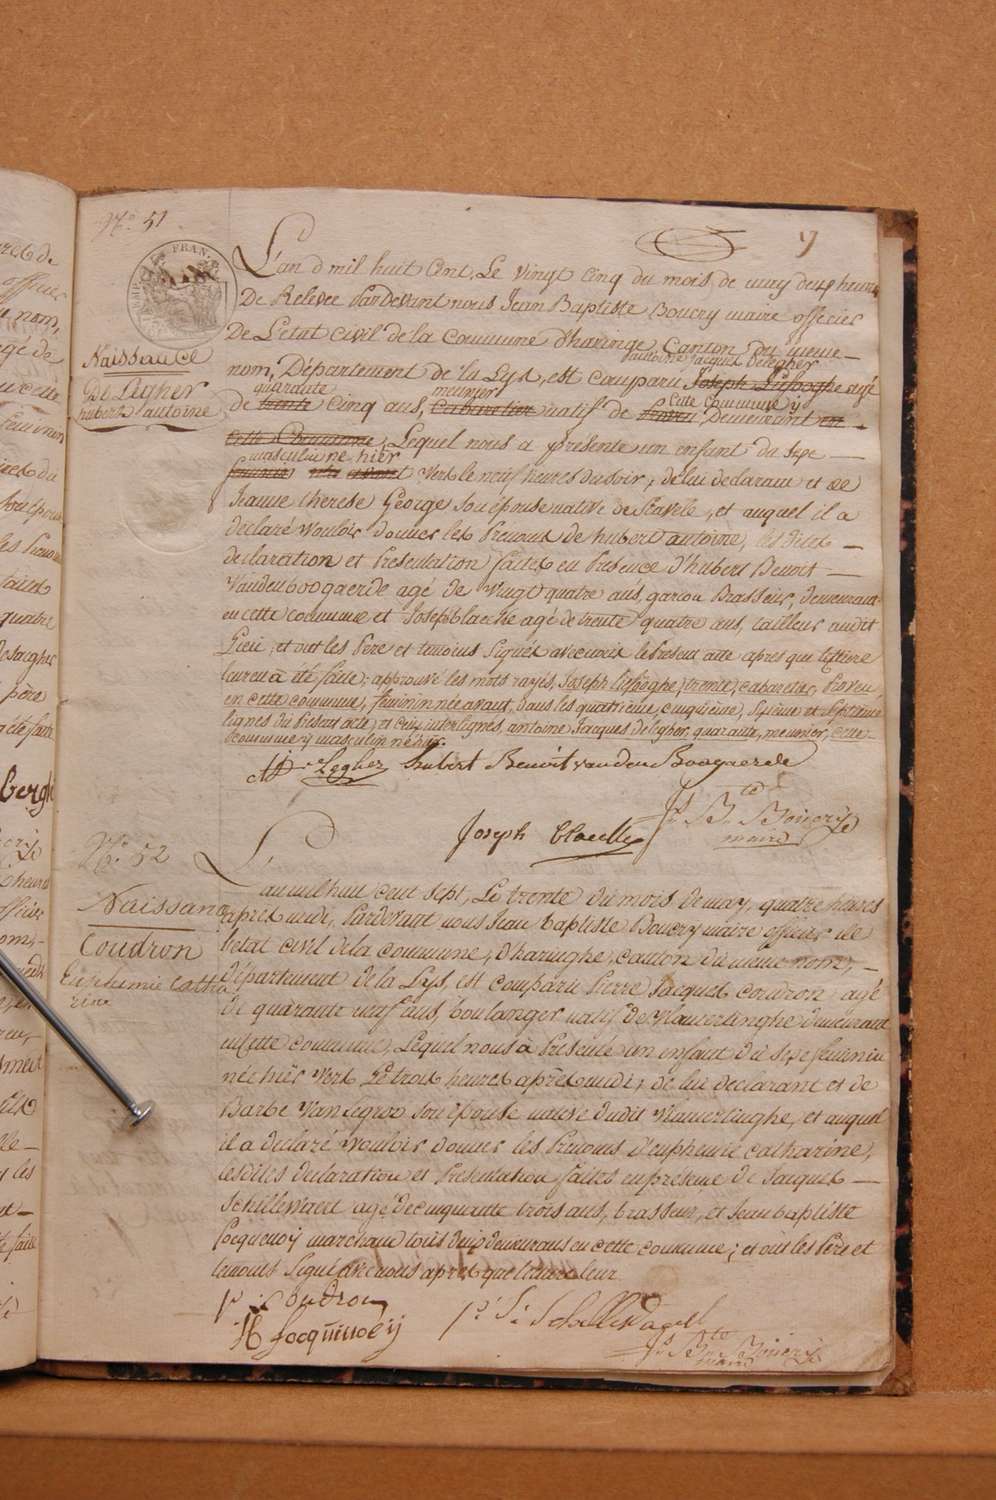 N.o 51
Naissance
De Legher
hubert antoine
L'an d mil huit Cent, Le vingt cinq du mois de may deux heures
De Relevée Pardevant nous Jean Baptiste Boucry maire officier
De L'etat Civil de la Commune d'haringe Canton du meme
antoine Jacques Delegher
nom, Département de la Lys, est comparu Joseph Liefooghe agé
quarante meunier Cette Commune y
de trente Cinq ans, Cabaretier natif de Proven Demeurant en
Cette Commune, Lequel nous a présenté un enfant du Sexe
masculin né hier
feminin née avant Vers le neuf heures du soir, de lui declarant et de
Jeanne therese George son épouse native de Stavele, et auquel il a
declaré vouloir donner les Prenoms de hubert antoine, les dites
declaration et Presentation faites en Presence d'hubert Benoit
Vandenboogaerde agé de vingt quatre ans, garçon Brasseur, demeurant
en cette commune et Joseph blaeke agé de trente quatre ans, tailleur audit
Lieu, et ont les Pere et temoins Signés avec nous le Present acte apres que lecture
leur en à été faite; approuvé les mots rayés, Joseph liefooghe, trente, cabaretier, Proven,
en cette commune, feminin née avant, dans les quatrieme, cinquieme, Sixieme et Septieme
lignes du Present acte, et cinq interlignes, antoine Jacques delegher, quarante, meunier, cette
commune y masculin né hier.
Legher hubert Benoit vanden Boogaerde
Joseph Js Bte Boucry
maire
No. 52
Naissance
Coudron
Euphemie Catha
rine
L'an mil huit cent sept, Le trente du mois de may, quatre heures
apres midi, Pardevant nous Jean baptiste Boucry maire officier de
l'etat civil de la commune, d'haringhe, canton du meme nom,
département de la Lys, est comparu Pierre Jacques Coudron agé
de quarante neuf ans, boulanger natif de Vlamertinghe demeurant
en cette commune, Lequel nous à Presenté un enfant du Sexe feminin
née hier Vers Le trois heures après midi, de lui declarant et de
Barbe Van Legroo son épouse native dudit Vlamertinghe, et auquel
il a declaré vouloir donner les Prenoms d'euphemie catharine,
lesdites declaration et Presentation faites en presence de Jacques
Schillewaert agé de cinquante trois ans, brasseur, et Jean baptiste
Jocquenoij marchand tous deux demeurans en cette commune; et ont les Père et
temoins Signé avec nous apres que lecture leur
p. Coudron
Js Bte Boucry
maire